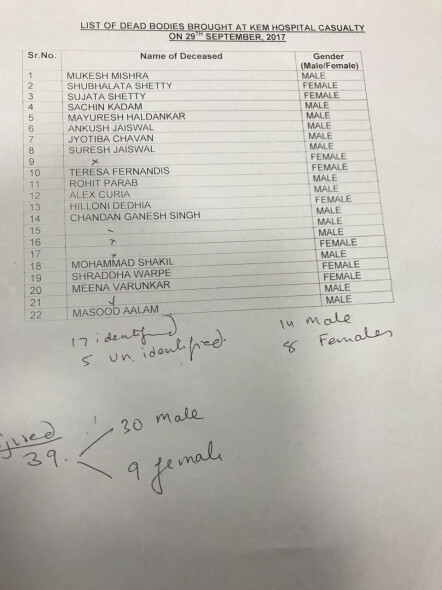 LIST OF DEAD BODIES BROUGHT AT KEM HOSPITAL CASUALTY
ON 29TH SEPTEMBER, 2017
Sr.No. Name of Deceased Gender
(Male/Female)
1 MUKESH MISHRA MALE
2 SHUBHALATA SHETTY FEMALE
3 SUJATA SHETTY FEMALE
4 SACHIN KADAM MALE
5 MAYURESH HALDANKAR MALE
6 ANKUSH JAISWAL MALE
7 JYOTIBA CHAVAN MALE
8 SURESH JAISWAL MALE
9 x FEMALE
10 TERESA FERNANDIS FEMALE
11 ROHIT PARAB MALE
12 ALEX CURIA MALE
13 HILLONI DEDHIA FEMALE
14 CHANDAN GANESH SINGH MALE
15 MALE
16 x MALE
17 x FEMALE
18 MOHAMMAD SHAKIL MALE
19 SHRADDHA WARPE FEMALE
20 MEENA VARUNKAR FEMALE
21 MALE
22 MASOOD AALAM MALE
17 identified 14 male
5 un. identified. 8 Females
30 male
39.
9 female